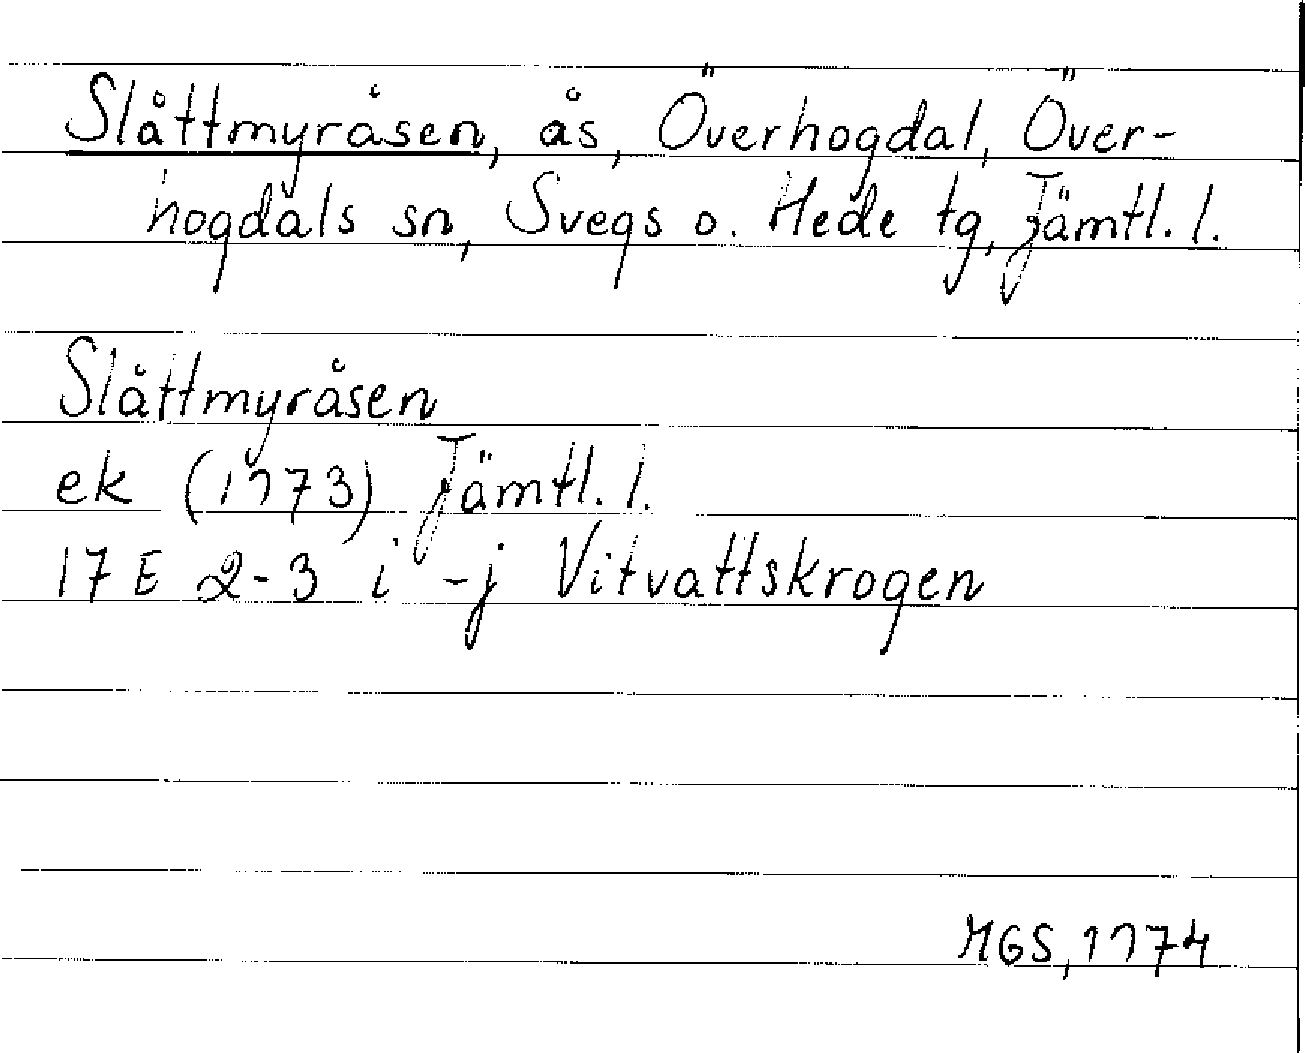 Slåttmyråsen, ås, Överhogdal, Över-
hogdals sn, Svegs o. Hede tg, Jämtl. l.
Slåttmyråsen
ek (1973) Jämtl. l.
17 E 2-3 i -j Vitvattskrogen
MGS, 1974